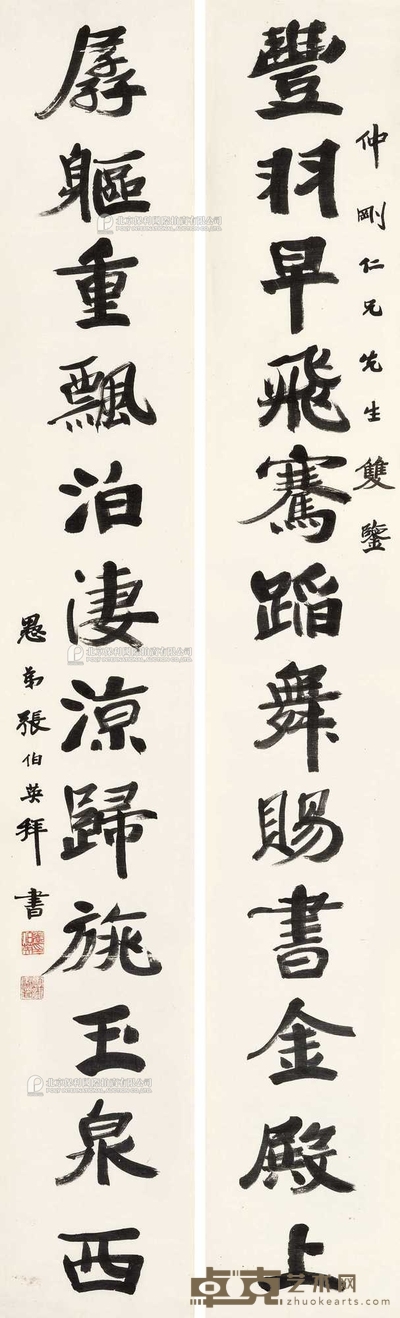 仲剛仁兄先生雙鑒
豐羽早飛騫蹈舞賜書金殿上
孱軀重飄泊淒涼歸旐玉泉西
愚弟張伯英拜書
北京保利國際拍賣有限公司
北京保利國際拍賣有限公司
北京保利國際拍賣有限公司
卓克艺术网
zhuokearts.com